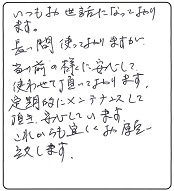 いつもお世話になっております。
長い間使っておりますが、
当り前の様に安心して
使わせて頂いております。
定期的にメンテナンスして
頂き、安心しています。
これからも宜しくお願い
致します。